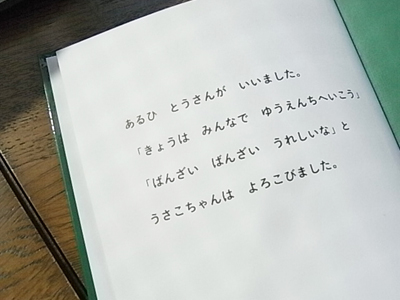 あるひ　とうさんが　いいました。
「きょうは　みんなで　ゆうえんちへいこう」
「ばんざい　ばんざい　うれしいな」と
うさこちゃんは　よろこびました。